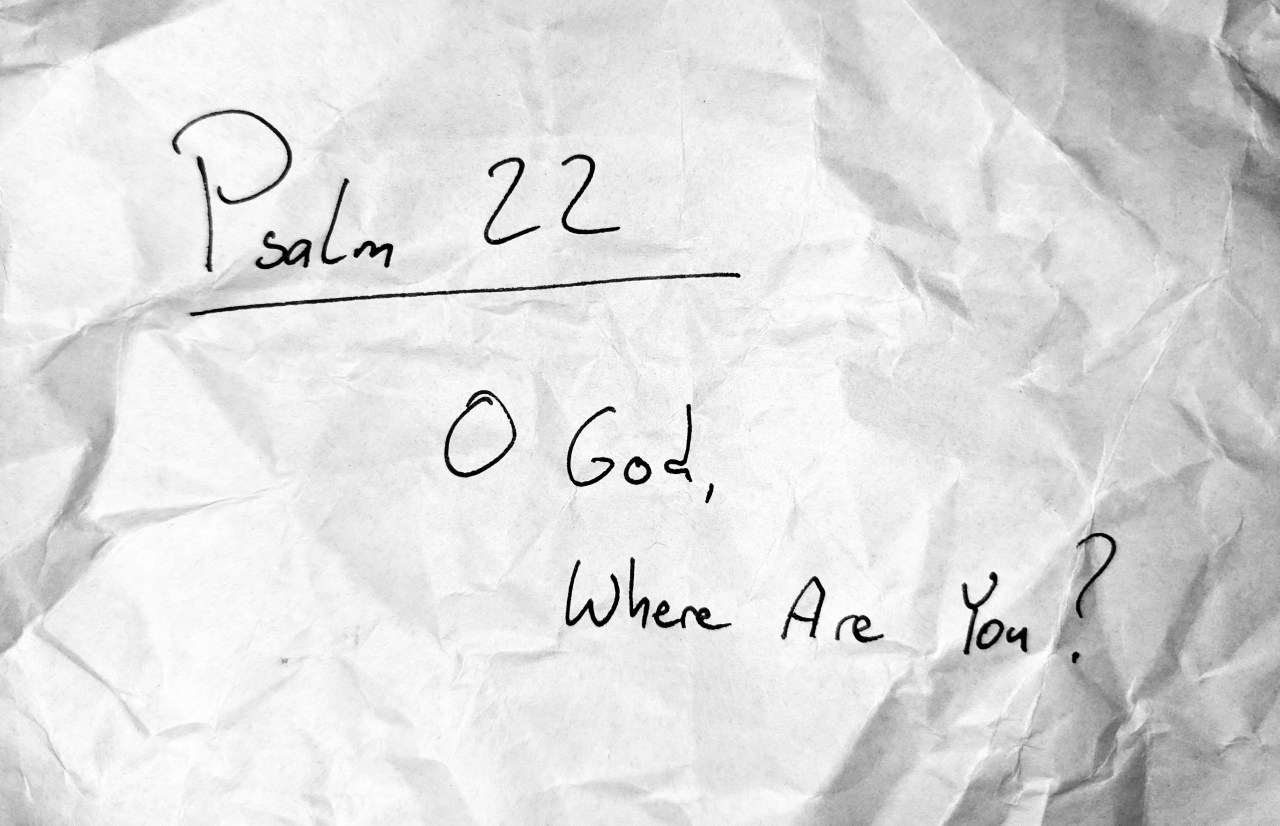 Psalm 22
O God,
Where Are You?